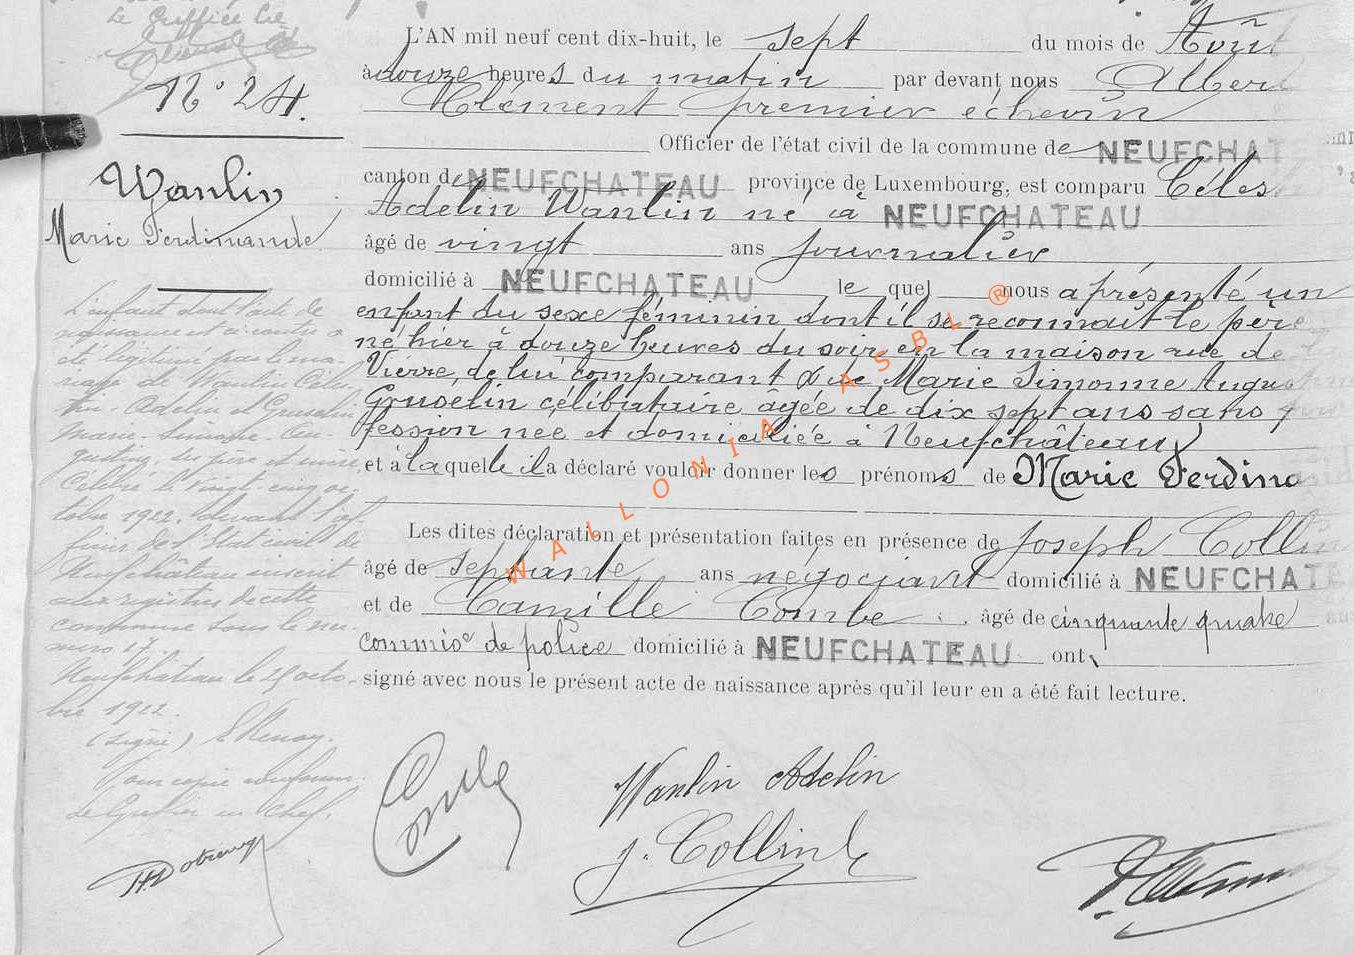 Le Greffier
N° 24.
Wanlin
Marie Ferdinande
L'enfant dont l'acte de
naissance est ci contre a
été légitimé par le ma-
riage de Wanlin Céles-
tin-Adelin et Gruselin
Marie-Simone-Au
gustine, ses père et mère,
célébré le vingt cinq oc-
tobre 1922, devant l'of-
ficier de l'Etat civil de
Neufchâteau inscrit
aux registres de cette
commune sous le nu-
méro 17.
Neufchâteau le 25 octo-
bre 1922.
(signé)
Pour copie conforme
Le Greffier en Chef,
L'AN mil neuf cent dix-huit, le sept du mois de Août
à douze heures du matin par devant nous Albert
Clément premier échevin
Officier de l'état civil de la commune de NEUFCHAT
canton de NEUFCHATEAU province de Luxembourg, est comparu Céles
Adelin Wanlin né à NEUFCHATEAU
âgé de vingt ans journalier
domicilié à NEUFCHATEAU le quel nous a présenté un
enfant du sexe féminin dont il se reconnait le père
né hier à douze heures du soir en la maison rue de
Vierre, de lui comparant & de Marie Simonne August
Gruselin célibataire âgée de dix sept ans sans pro
fession née et domiciliée à Neufchâteau
et à laquelle il a déclaré vouloir donner les prénoms de Marie Ferdina
Les dites déclaration et présentation faites en présence de Joseph Collin
âgé de septante ans négociant domicilié à NEUFCHATE
et de Camille Combe âgé de cinquante quatre
commisre de police domicilié à NEUFCHATEAU ont
signé avec nous le présent acte de naissance après qu'il leur en a été fait lecture.
Combe
Wanlin Adelin
J. Collin
WALLONIA ASBL ®